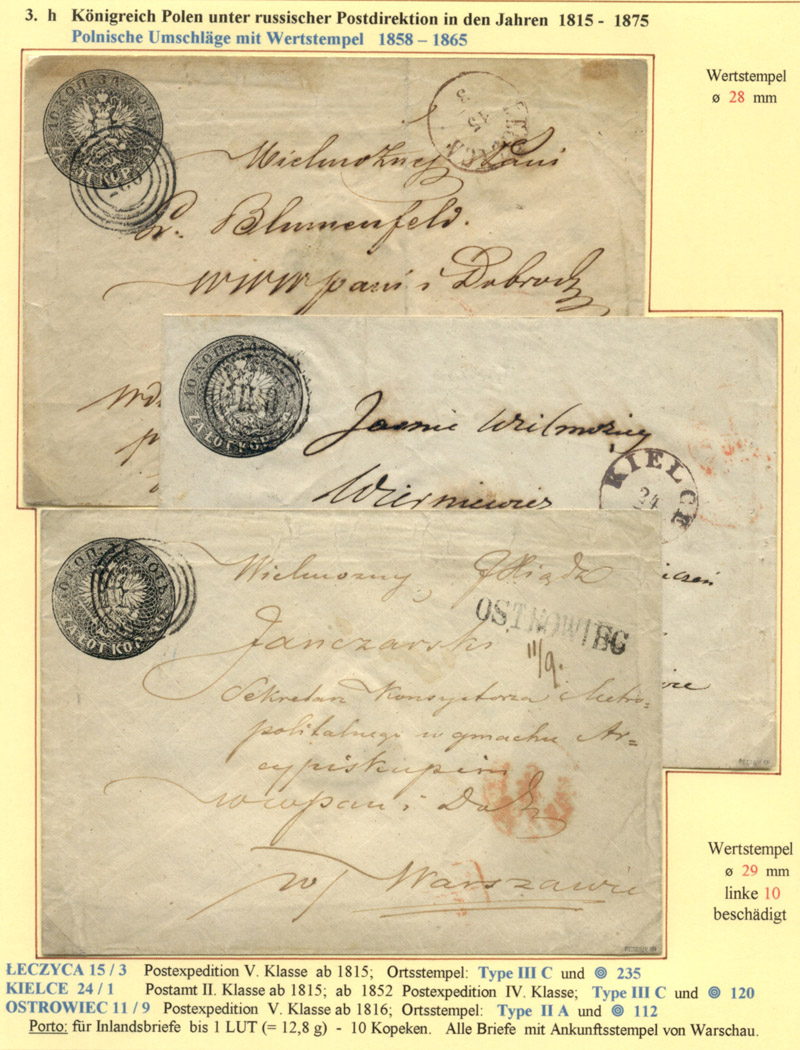 3. h Königreich Polen unter russischer Postdirektion in den Jahren 1815 - 1875
Polnische Umschläge mit Wertstempel 1858 – 1865
Wertstempel
ø 28 mm
10 КОП: ЗА ЛОТЪ
ZA ŁÓT KOP. 10
15
3
Wielmożny Pani
Dr. Blumenfeld.
WWWpani i Dobrodz
10 КОП: ЗА
ZA ŁOT KOP.
Jaśnie Wielmożny
Wierniewicz
KIELCE
24
10 КОП: ЗА ЛОТЬ
ZA ŁOT KOP.
Wielmożny, Xiądz
OSTROWIEC
11/9.
Janczarski
Sekretarz Konsystorza Metro-
politalnego w gmachu Ar-
cypiskupim
wwpan i Dob
w/ Warszawie
Wertstempel
ø 29 mm
linke 10
beschädigt
ŁECZYCA 15 / 3 Postexpedition V. Klasse ab 1815; Ortsstempel: Type III C und 235
KIELCE 24 / 1 Postamt II. Klasse ab 1815; ab 1852 Postexpedition IV. Klasse; Type III C und 120
OSTROWIEC 11 / 9 Postexpedition V. Klasse ab 1816; Ortsstempel: Type II A und 112
Porto: für Inlandsbriefe bis 1 LUT (= 12,8 g) - 10 Kopeken. Alle Briefe mit Ankunftsstempel von Warschau.